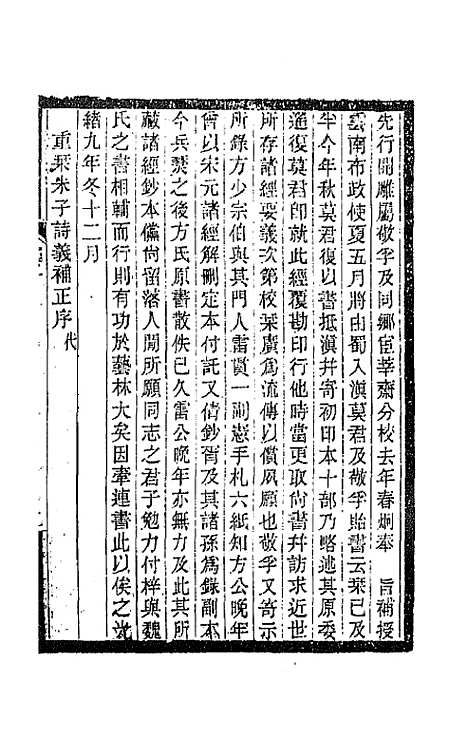 先行開雕屬敬孚及同鄉臣莘齋分校去年春炯奉　旨補授
雲南布政使夏五月將由蜀入滇莫君及敬孚貽書云栞已及
半今年秋莫君復以書抵滇幷寄初印本十部乃略述其原委
遄復莫君卽就此經覆勘印行他時當更取尙書幷訪求近世
所存諸經要義次第校栞廣爲流傳以償夙願也敬孚又寄示
所錄方少宗伯與其門人雷貫一副憲手札六紙知方公晚年
曾以宋元諸經解刪定本付託又倩鈔胥及其諸孫爲錄副本
今兵燹之後方氏原書散佚已久雷公晚年亦無力及此其所
藏諸經鈔本儻尙留落人閒所願同志之君子勉力付梓與魏
氏之書相輔而行則有功於藝林大矣因牽連書此以俟之光
緖九年冬十二月
重栞朱子詩義補正序代